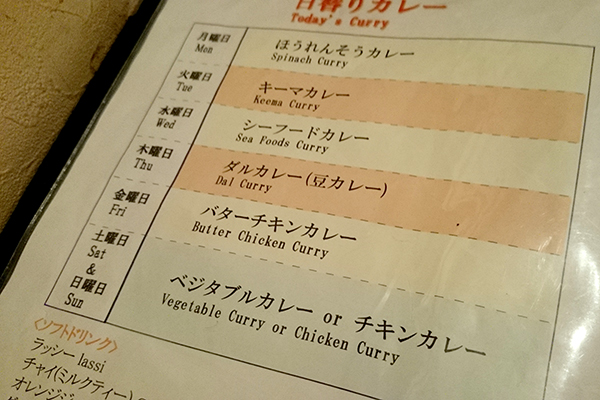 日替りカレー
Today's Curry
月曜日
Mon
ほうれんそうカレー
Spinach Curry
火曜日
Tue
キーマカレー
Keema Curry
水曜日
Wed
シーフードカレー
Sea Foods Curry
木曜日
Thu
ダルカレー(豆カレー)
Dal Curry
金曜日
Fri
バターチキンカレー
Butter Chicken Curry
土曜日
Sat
&
日曜日
Sun
ベジタブルカレー or チキンカレー
Vegetable Curry or Chicken Curry
〈ソフトドリンク〉
ラッシー lassi
チャイ(ミルクティー)
オレンジジ